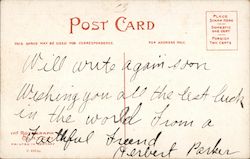 POST CARD
PLACE
STAMP HERE
DOMESTIC
ONE CENT
FOREIGN
TWO CENTS
THIS SPACE MAY BE USED FOR CORRESPONDENCE
FOR ADDRESS ONLY
Will write again soon
Wishing you all the best luck
in the world from a
faithful friend
Herbert Parker
PRINTED IN